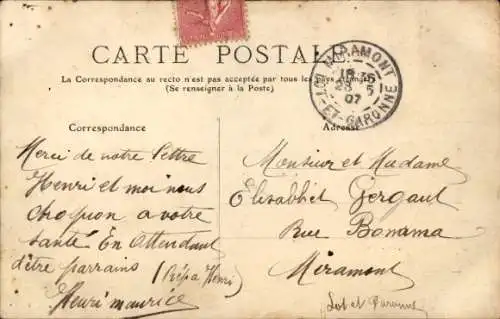 CARTE POSTALE
La Correspondance au recto n'est pas acceptée par tous les pays étrangers
(Se renseigner à la Poste)
MIRAMONT
LOT-ET-GARONNE
07
Correspondance
Adresse
Merci de notre lettre
Henri et moi nous
choquon a votre
santé En Attendant
d'être parrains (Crêpa Henri)
Henri maurice
Monsieur et Madame
Elisabhet Gergaut
Rue Bonama
Miramont
Lot et Garonne